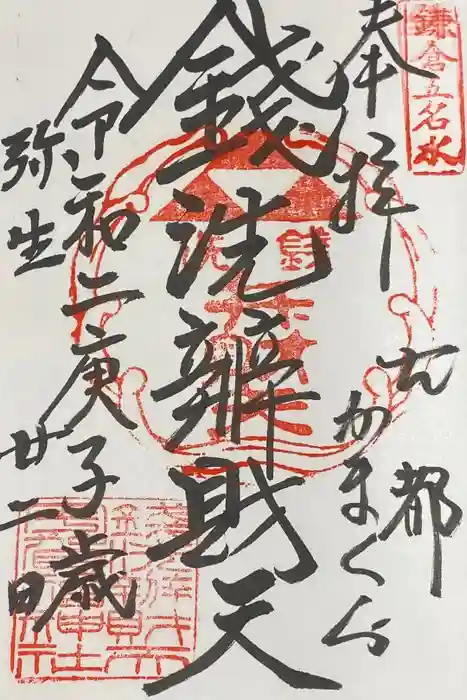 鎌倉五名水
奉拝
古都
かまくら
銭洗辨財天
令和二庚子歳
弥生
廿二日